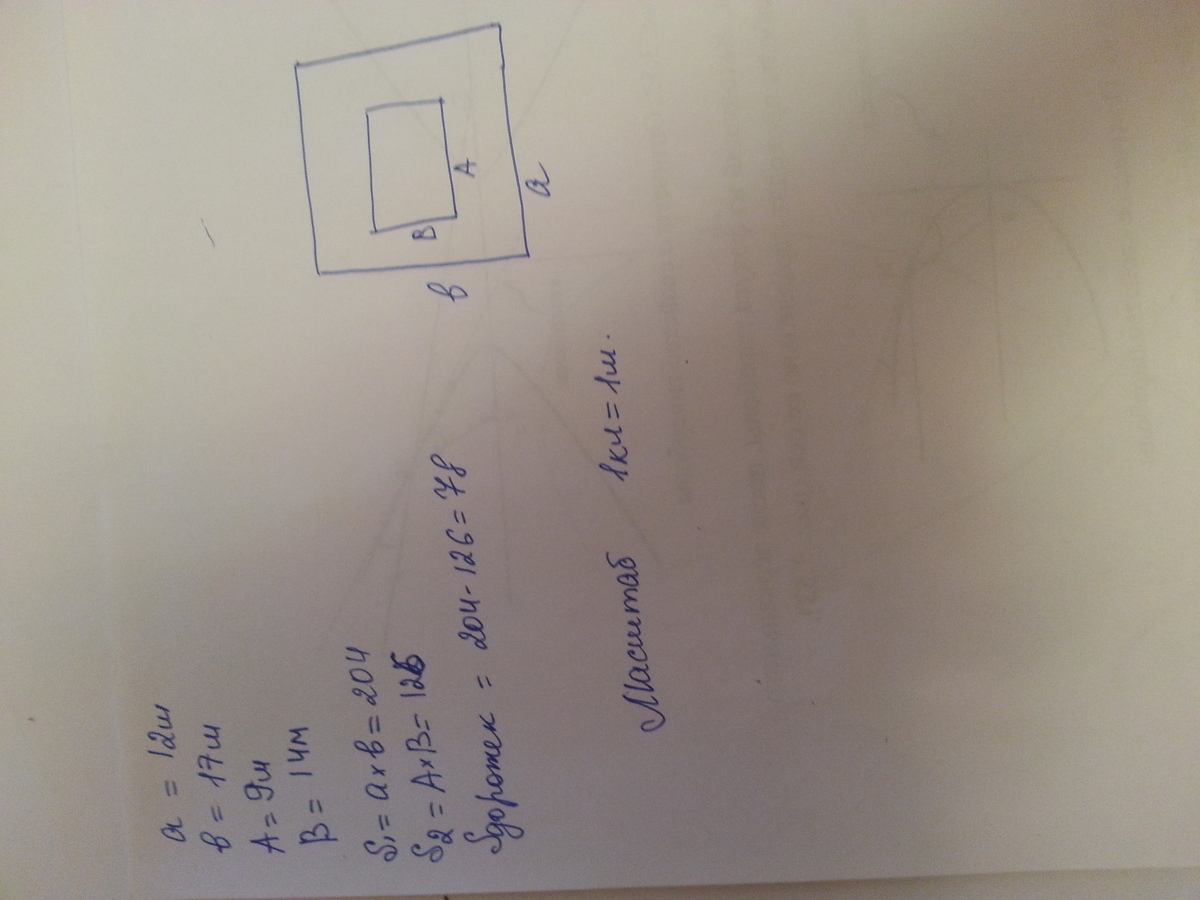 a = 12м
в = 17м
A = 9м
B = 14м
S₁ = a x в = 204
S₂ = A x B = 126
Sдорожек = 204 - 126 = 78
Масштаб 1кл = 1м.
B
A
в
a